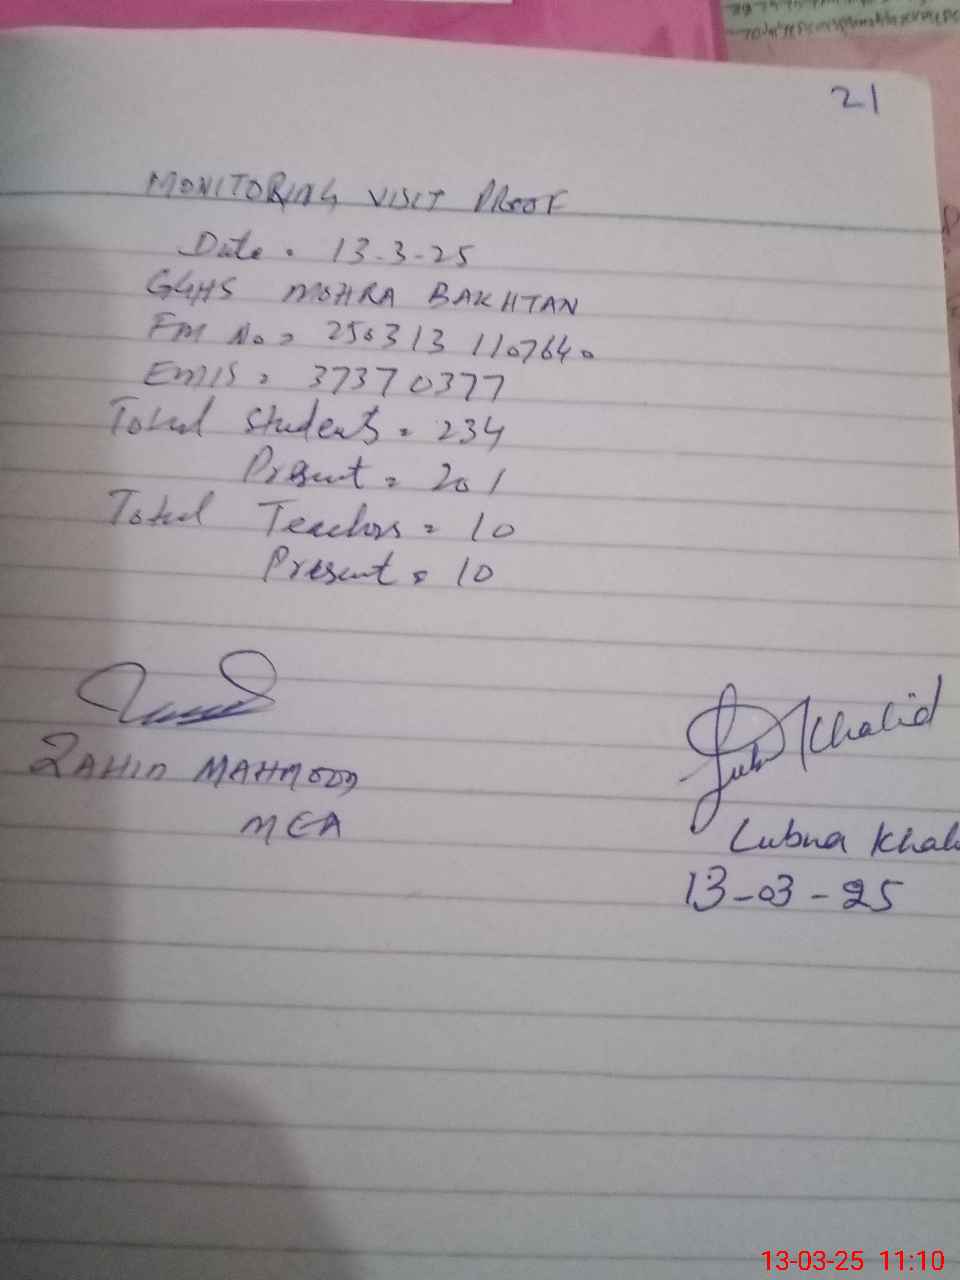 21
MONITORING VISIT PROOF
Date = 13-3-25
GGHS MOHRA BAKHTAN
FM No = 250313 1107640
EMIS = 37370377
Total Students = 234
Present = 201
Total Teachers = 10
Present = 10
Khalid
ZAHID MAHMOOD
MEA
Lubna Khal
13-03-25
13-03-25 11:10